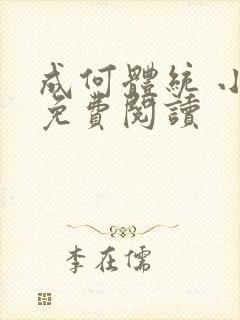 成何體統 小
免費閱讀
李在儒